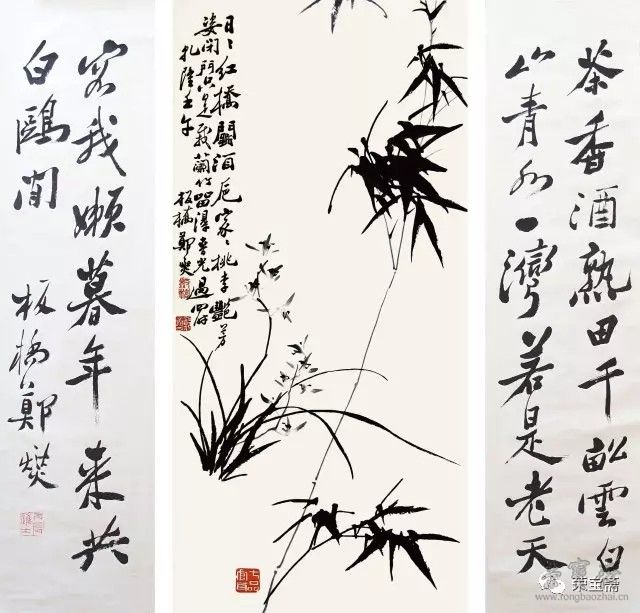 茶香酒熟田千畝雲白
山青水一灣若是老天
日々紅橋鬭酒卮家々桃李艷芳
姿閉門只是栽蘭竹留得春光過四時
乾隆壬午
板橋鄭燮
七品官耳
容我嬾暮年来共
白鷗閒
板橋鄭燮
荣宝斋
www.rongbaozhai.cn